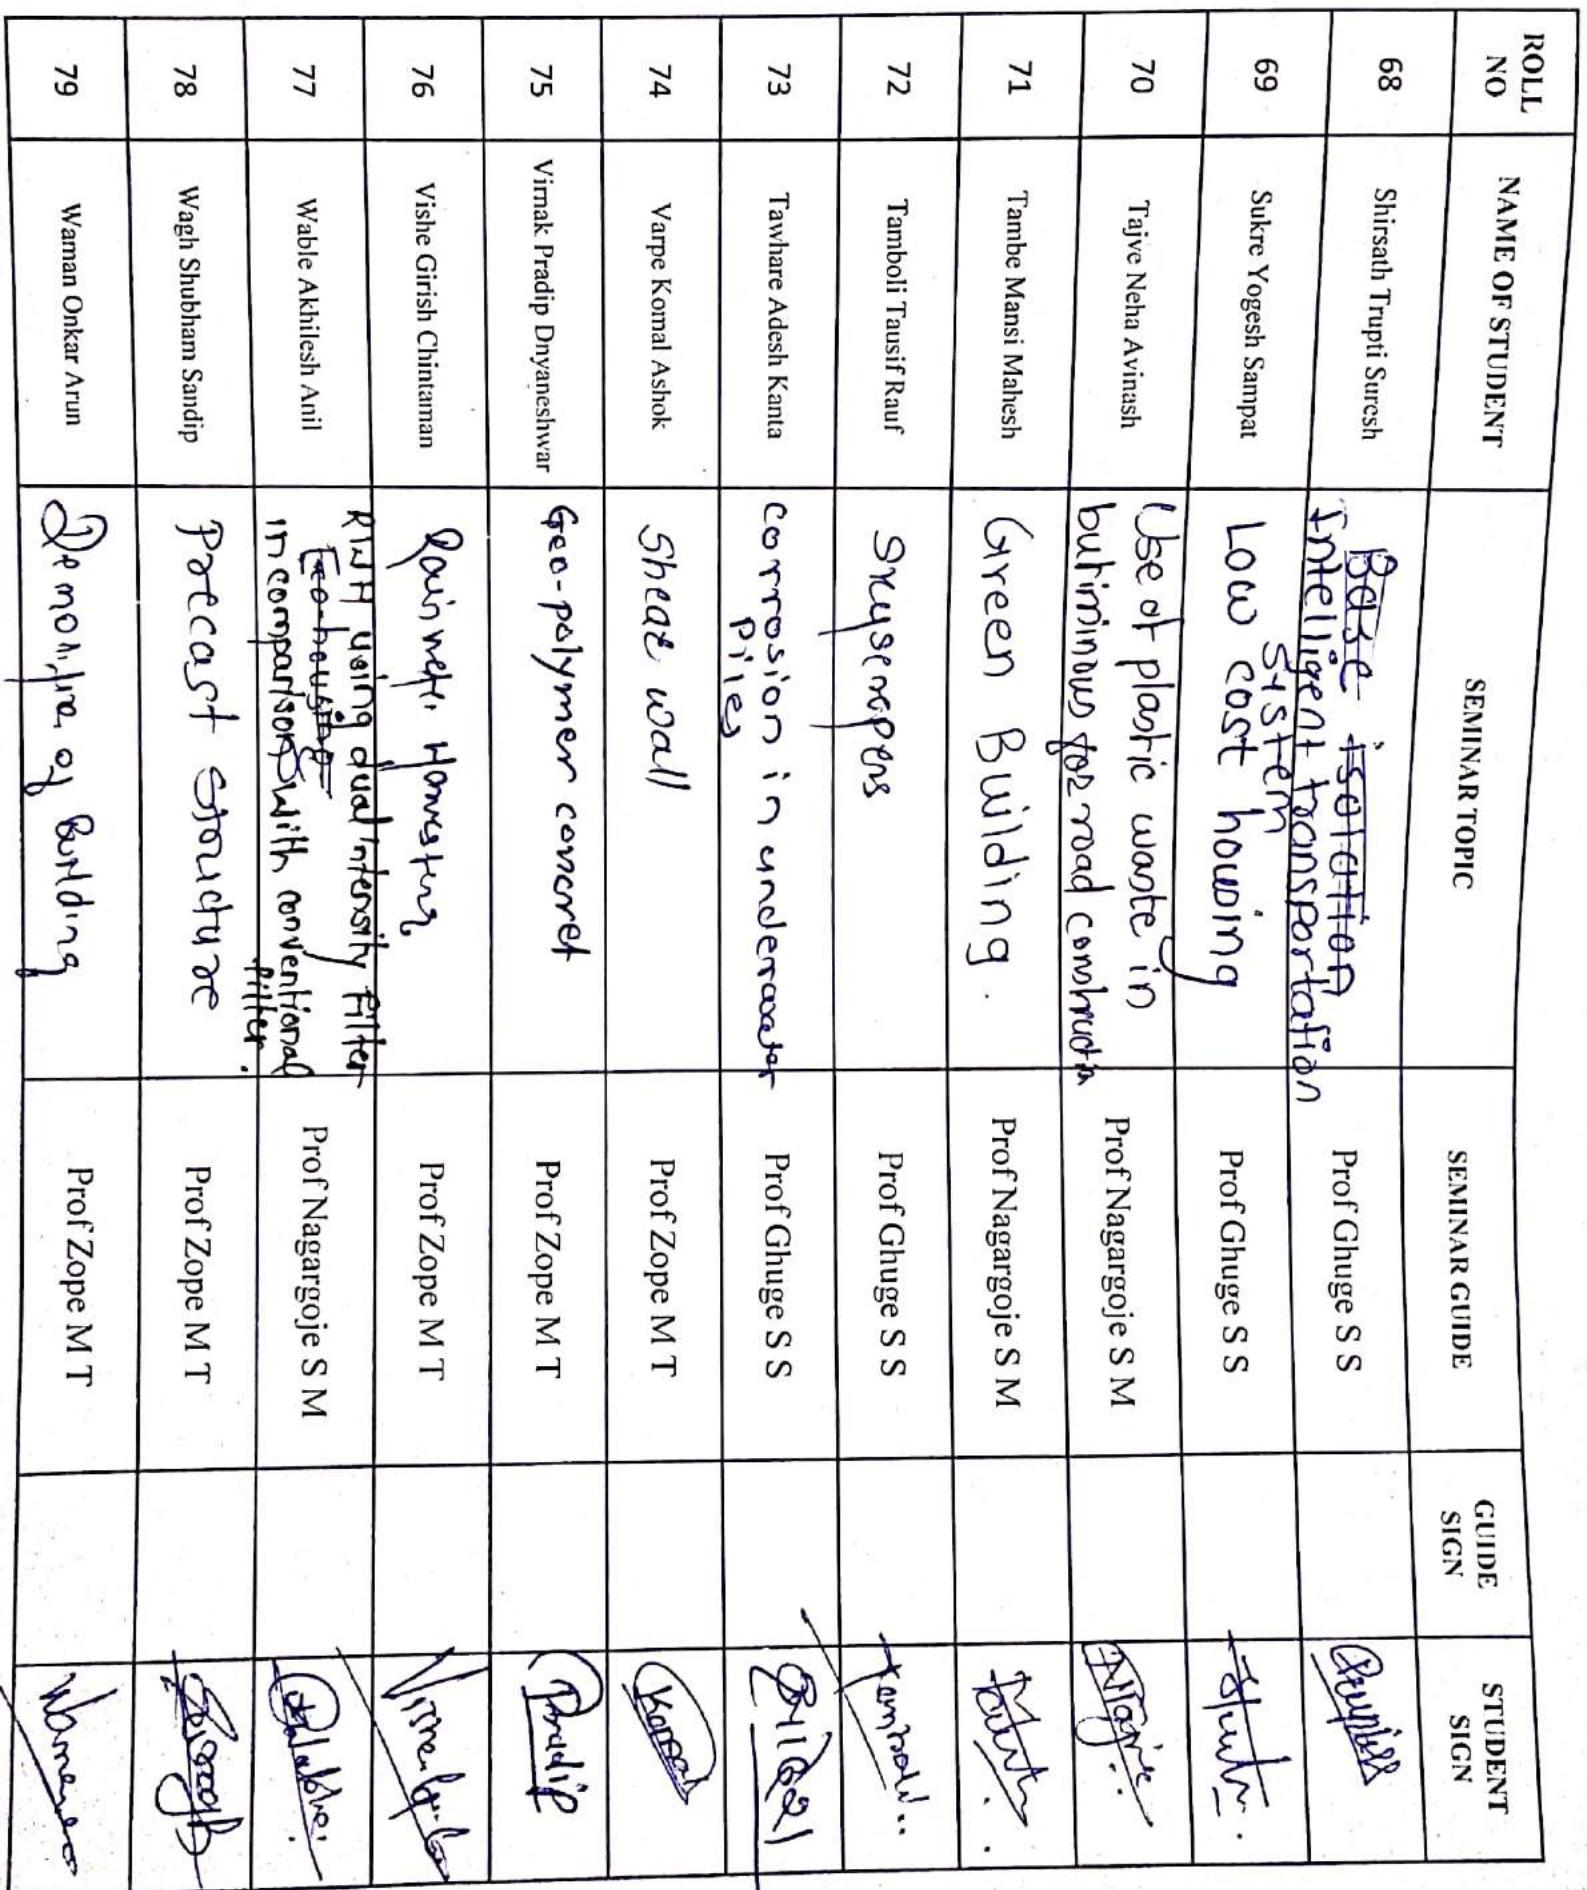 ROLL NO NAME OF STUDENT SEMINAR TOPIC SEMINAR GUIDE GUIDE SIGN STUDENT SIGN
68 Shirsath Trupti Suresh Base isolation Prof Ghuge S S
Intelligent transportation
System
69 Sukre Yogesh Sampat Low cost housing Prof Ghuge S S
70 Tajve Neha Avinash Use of plastic waste in Prof Nagargoje S M
butiminous for road constructn
71 Tambe Mansi Mahesh Green Building. Prof Nagargoje S M
72 Tamboli Tausif Rauf Skyscrapers Prof Ghuge S S
73 Tawhare Adesh Kanta corrosion in underwater Prof Ghuge S S
Piles
74 Varpe Komal Ashok Shear wall Prof Zope M T Komal
75 Virnak Pradip Dnyaneshwar Geo-polymer concret Prof Zope M T Pradip
76 Vishe Girish Chintaman Prof Zope M T
77 Wable Akhilesh Anil RWH using dual intensity Filter Prof Nagargoje S M
Eco-housing
in comparison with conventional
filter.
78 Wagh Shubham Sandip Precast Structure Prof Zope M T
79 Waman Onkar Arun of Building Prof Zope M T